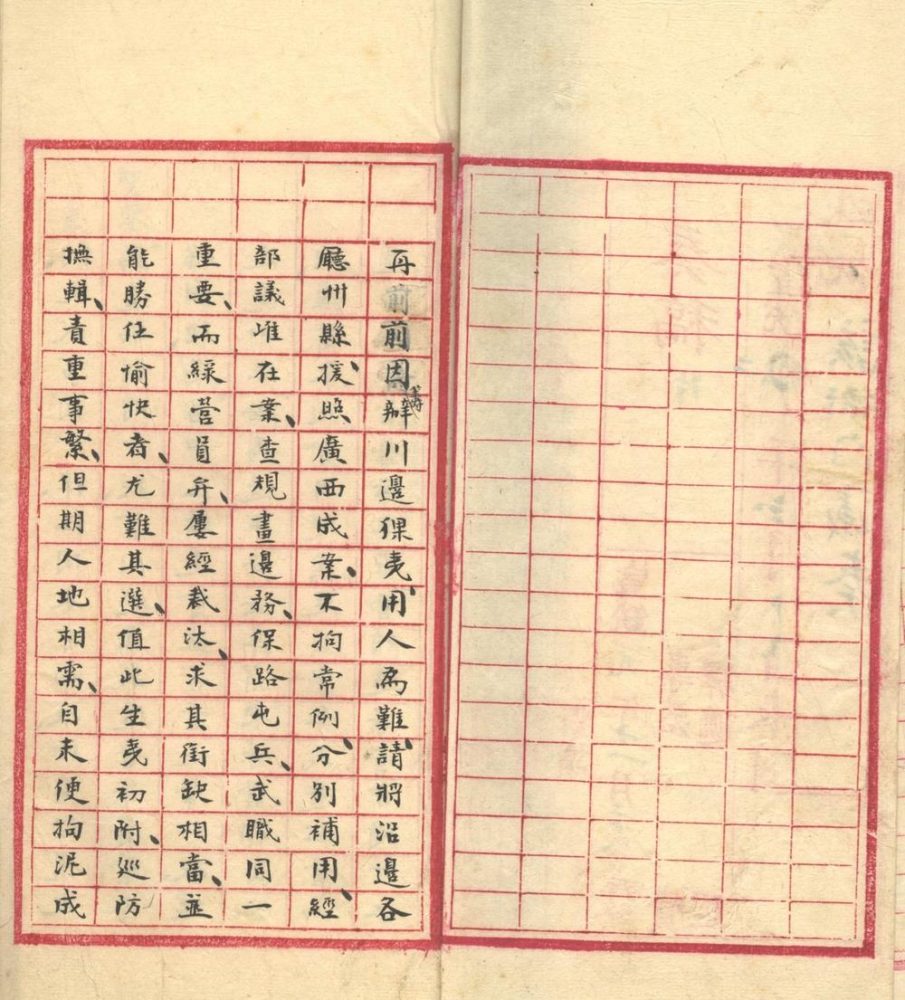 再前前因籌辦川邊猓夷、用人為難、請將沿邊各
廳州縣、援照廣西成案、不拘常例、分別補用、經
部議准在案、查規畫邊務、保路屯兵、武職同一
重要、而綠營員弁、屢經裁汰、求其銜缺相當、並
能勝任愉快者、尤難其選、值此生夷初附、巡防
撫輯、責重事繁、但期人地相需、自未便拘泥成